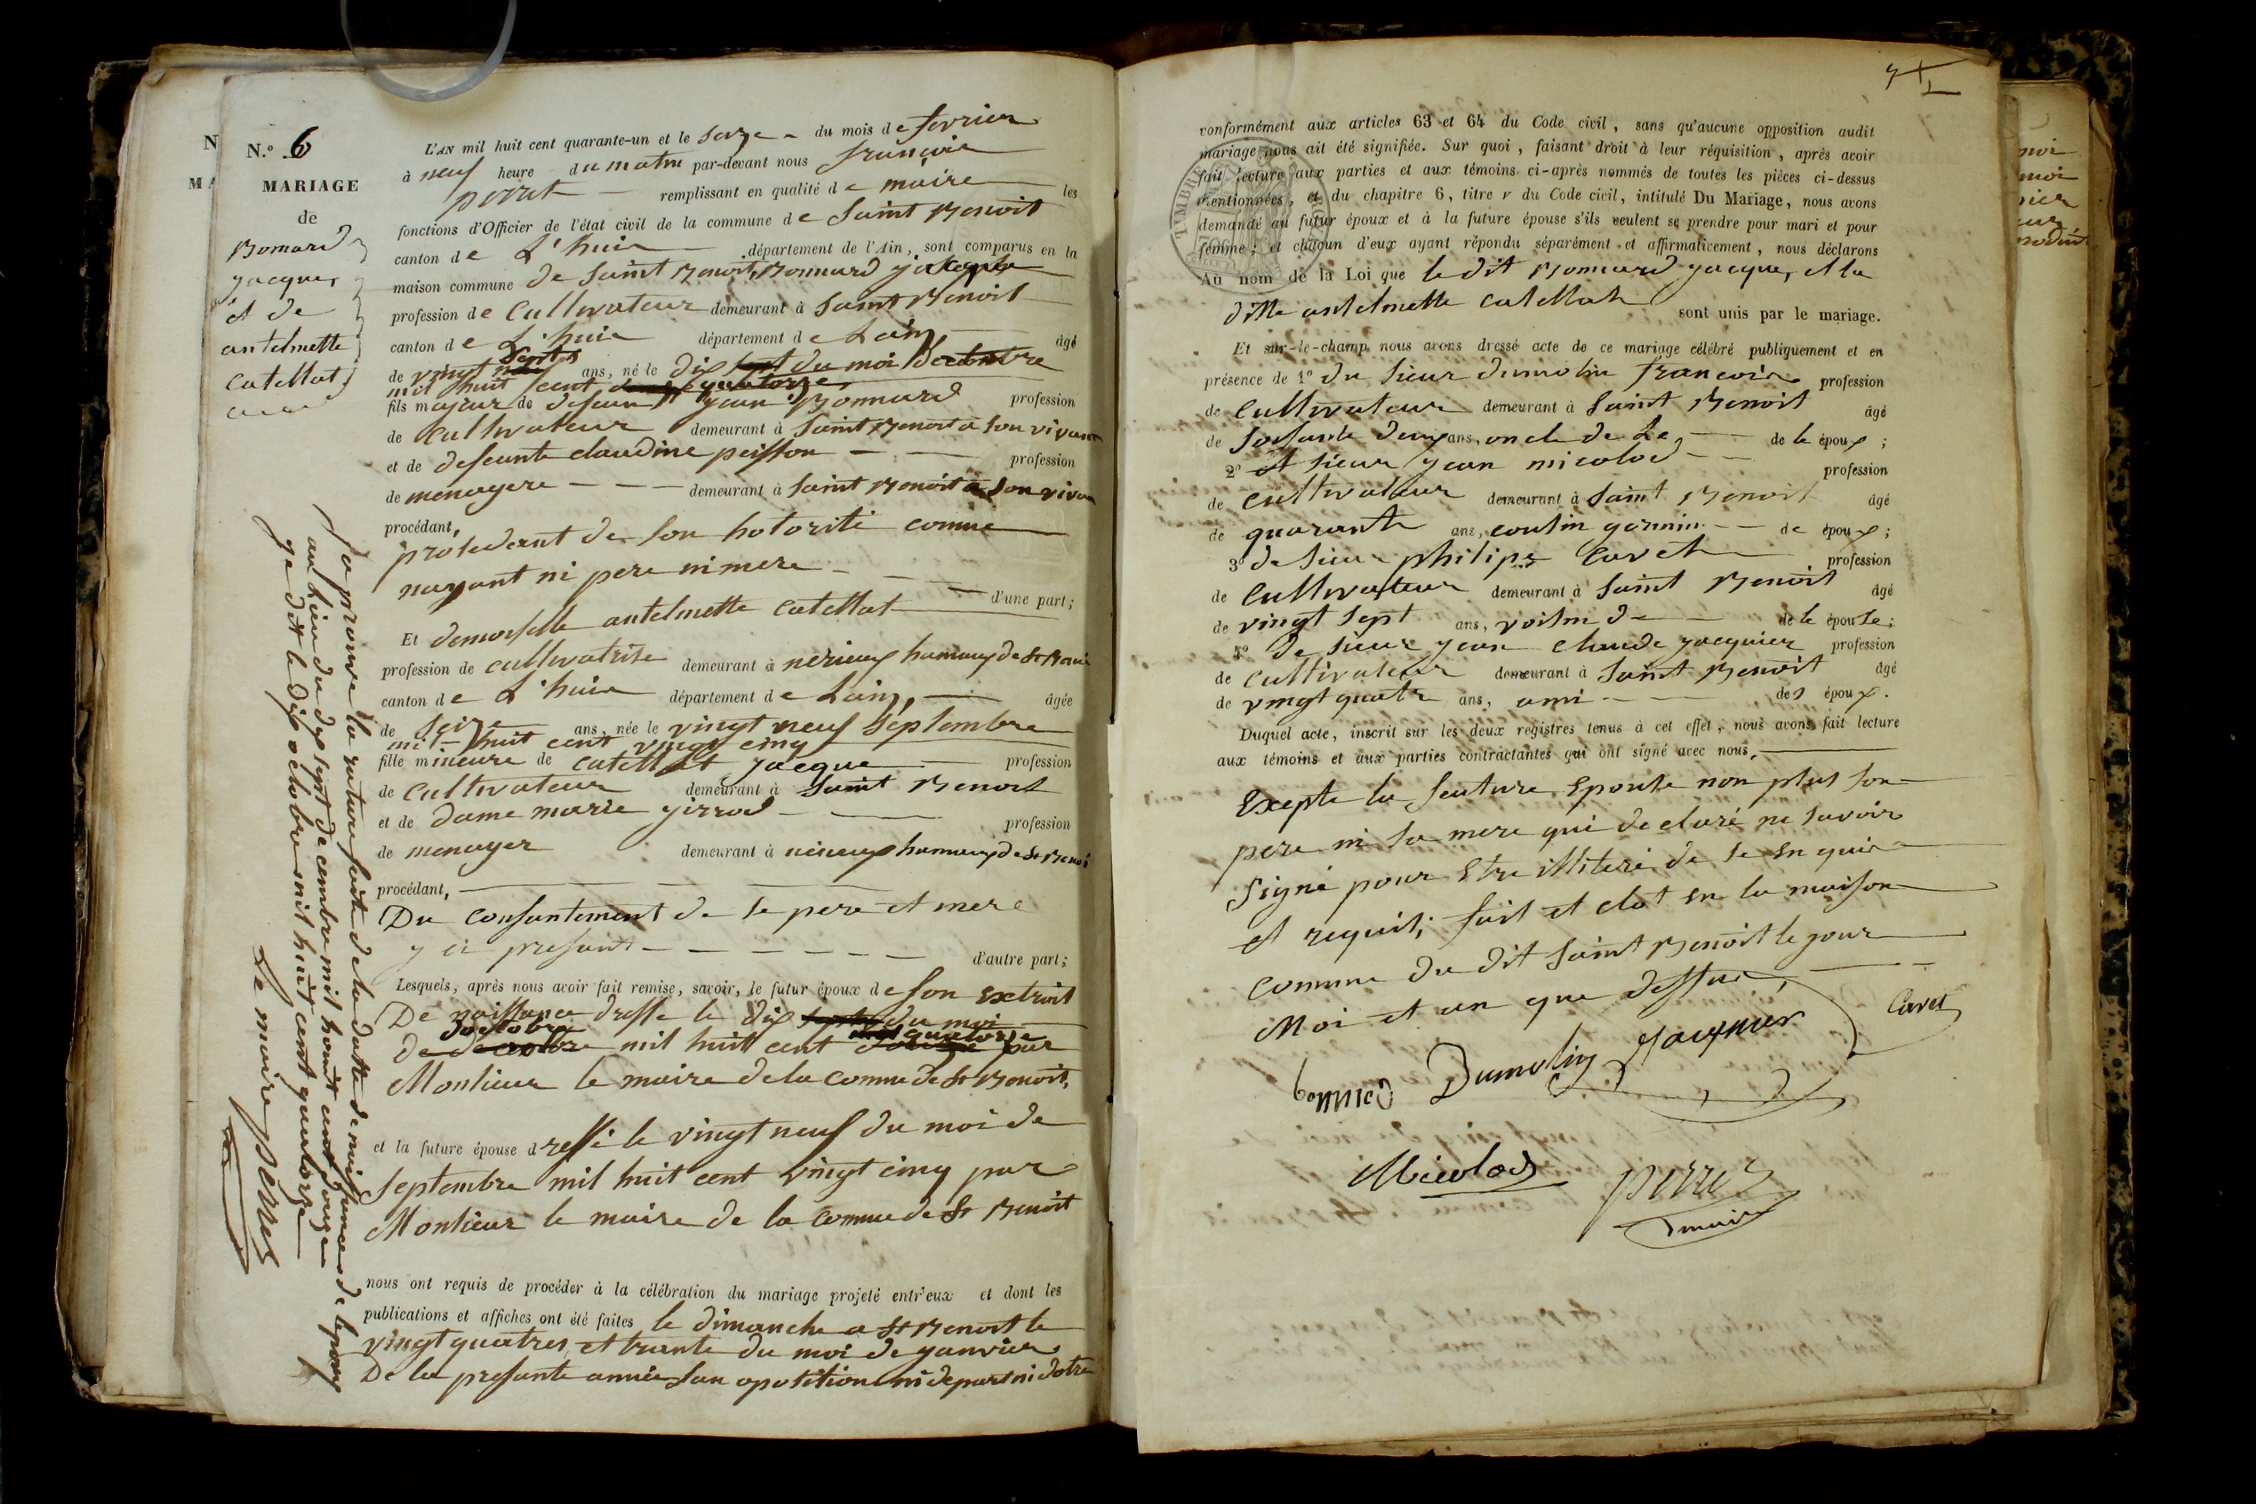 N.º 6
MARIAGE
de
Bonnard
jacque,
et de
antelmette
Catellat,
L'AN mil huit cent quarante-un et le seize du mois de fevrier
à neuf heure du matin par-devant nous françois
perret remplissant en qualité de maire les
fonctions d'Officier de l'état civil de la commune de Saint Benoit
canton de L'huis département de l'Ain, sont comparus en la
maison commune de Saint Benoit, Bonnard jacque
profession de Cultivateur demeurant à Saint Benoit
canton de L'huis département de Lain, âgé
de vingt six ans, né le dix sept du moi decembre
mil huit cent quatorze,
fils majeur de defeunt jean Bonnard profession
de Cultivateur demeurant à Saint Benoit a son vivant
et de defeunte claudine peisson profession
de menagere demeurant à Saint Benoit a son vivan
procédant,
prosedant de son hotorité comme
nayant ni pere ni mere d'une part;
Et demoiselle antelmette catellat
profession de cultivatrise demeurant à nerieux hameux de St Benoi
canton de L'huis département de Lain, âgée
de seize ans, née le vingt neuf Septembre
mil huit cent vingt cinq
fille mineure de catellat jacque profession
de Cultivateur demeurant à Saint Benoit
et de dame marie girrod profession
de menager demeurant à nerieux hameux de St Benoi
procédant,
Du consantement de se pere et mere
y ci presant d'autre part;
Lesquels, après nous avoir fait remise, savoir, le futur époux de son extrait
De naissance dresse le dix sept du moi
doctobre
de decembre mil huit cent quatorze par
Monsieur le maire de la comme de St Benoit,
et la future épouse dressé le vingt neuf du moi de
septembre mil huit cent vingt cinq par
Monsieur le maire de la comme de St Benoit
nous ont requis de procéder à la célébration du mariage projeté entr'eux et dont les
publications et affiches ont été faites le dimanche a St Benoit le
vingt quatres et trante du moi de janvier
De la presante année san oposition ni depart ni dotre
japrouve la rature faite de la datte de naissance de lepoux
au lieu du dix sept decembre mil houit cent douze
je dit le dix octobre mil huit cent quatorze
Le maire perret
conformément aux articles 63 et 64 du Code civil, sans qu'aucune opposition audit
mariage nous ait été signifiée. Sur quoi, faisant droit à leur réquisition, après avoir
fait lecture aux parties et aux témoins ci-après nommés de toutes les pièces ci-dessus
mentionnées, et du chapitre 6, titre V du Code civil, intitulé Du Mariage, nous avons
demandé au futur époux et à la future épouse s'ils veulent se prendre pour mari et pour
femme; et chacun d'eux ayant répondu séparément et affirmativement, nous déclarons
Au nom de la Loi que le dit Bonnard jacque, et la
ditte antelmette catellat sont unis par le mariage.
Et sur-le-champ nous avons dressé acte de ce mariage célébré publiquement et en
présence de 1º du sieur dumolin francois profession
de Cultivateur demeurant à Saint Benoit âgé
de soisante deux ans, oncle de Le de le époux;
2º et sieur jean nicolod profession
de cultivateur demeurant à Saint Benoit âgé
de quarante ans, cousin germin de époux;
3º de sieur philipe Cavet profession
de Cultivateur demeurant à Saint Benoit âgé
de vingt sept ans, voisin de de le épouse;
4º de sieur jean claude jacquier profession
de cultivateur demeurant à Saint Benoit âgé
de vingt quatre ans, ami des époux.
Duquel acte, inscrit sur les deux registres tenus à cet effet, nous avons fait lecture
aux témoins et aux parties contractantes qui ont signé avec nous,
Exepte la feuture epouse non plus son
pere ni sa mere qui declaré ne savoir
signé pour etre illiteré de se enquis
et requit, fait et clot en la maison
comune du dit Saint Benoit le jour
Moi et an que dessus,
Cavet
Dumolin Jacquier
Nicolod perret
maire